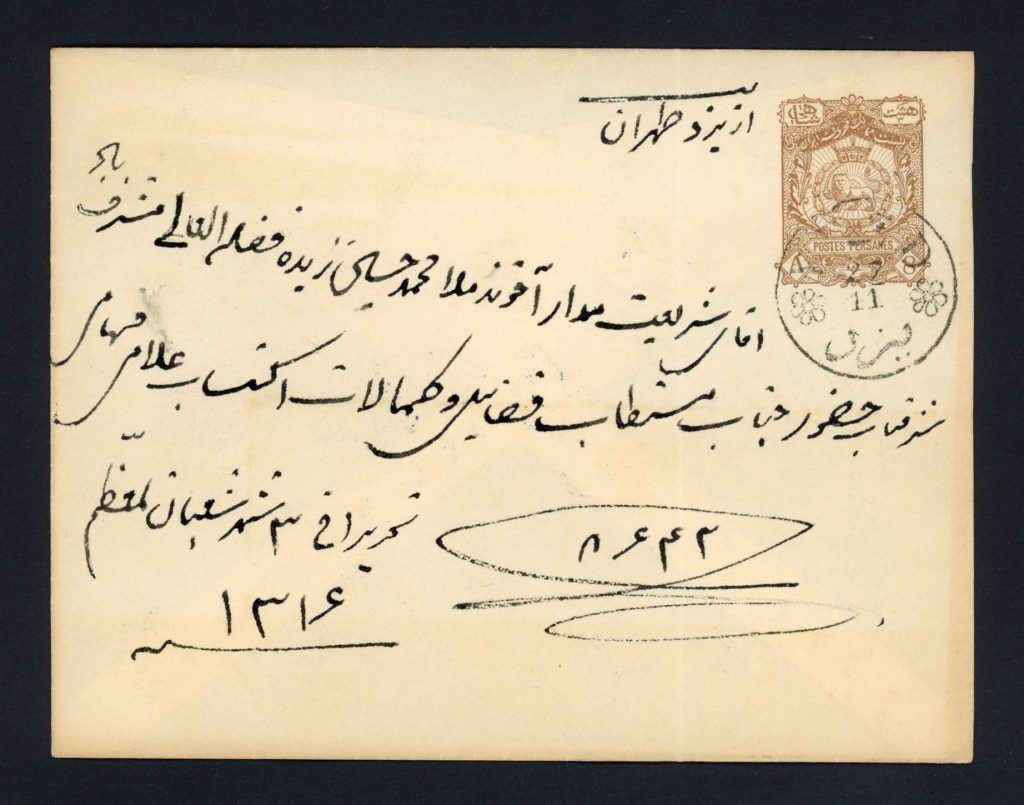 از یزد طهران
هشت
POSTES PERSANES
۸ 8
YEZD
27
11
یزد
آقای شریعت مدار آخوند ملا محمد حسین زیده فضله العالی مشرف باد
شرفیاب حضور جناب مستطاب فضایل و کمالات اکتساب علامی فهامی
تحریرا فی ۳ شهر شعبان المعظم
۱۳۱۶
۸۶۴۲